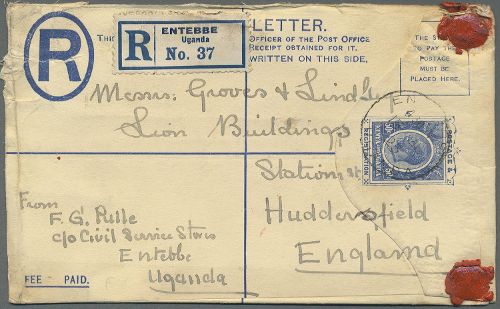 LETTER.
R
THIS
OFFICER OF THE POST OFFICE
RECEIPT OBTAINED FOR IT.
WRITTEN ON THIS SIDE.
R
ENTEBBE
Uganda
No. 37
THE
TO PAY THE
POSTAGE
MUST BE
PLACED HERE.
Messrs. Groves &
Lion Buildings
Station St
Huddersfield
England
POSTAGE &
REGISTRATION
From
F. G.
c/o Civil Service Stores
Entebbe
Uganda
FEE PAID.